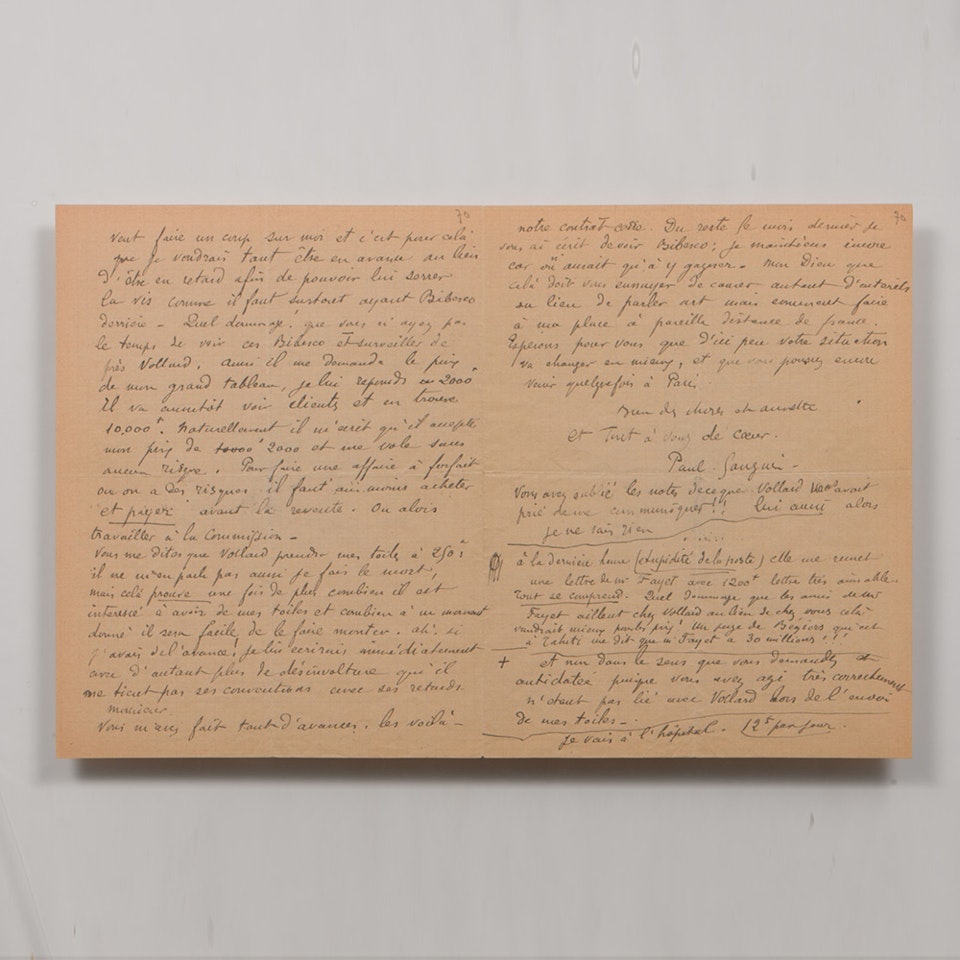 70
veut faire un coup sur moi et c'est pour celà
que je voudrais tant être en avance au lieu
d'être en retard afin de pouvoir lui serrer
la vis comme il faut surtout ayant Bibesco
derrière - Quel dommage! que vous n'ayez pas
le temps de voir ces Bibesco et surveiller de
près Vollard. Ainsi il me demande le prix
de mon grand tableau, je lui réponds 2000
Il va aussitôt voir clients et en trouve
10.000f. Naturellement il m'écrit qu'il accepte
mon prix de 2000 et me vole sans
aucun risque. Pour faire une affaire à forfait
où on a des risques il faut au moins acheter
et payer avant la revente. Ou alors
travailler à la Commission -
Vous me dites que Vollard prendra mes toiles à 250f
il ne m'en parle pas aussi je fais le mort,
mais celà prouve une fois de plus combien il est
intéressé à avoir de mes toiles et combien à un moment
donné il sera facile de le faire monter. Ah! si
j'avais de l'avance! je lui écrirais immédiatement
avec d'autant plus de désinvolture qu'il
me tient pas ses conventions avec ses retards
monsieur
Vous m'avez fait tant d'avances. les voilà -
70
notre contrat Du reste le mois dernier je
vous ai écrit de voir Bibesco; je maintiens encore
car on aurait qu'à y gagner - Mon Dieu que
celà doit vous ennuyer de causer autant d'intérêts
au lieu de parler art mais comment faire
à ma place à pareille distance de france.
Espérons pour vous que d'ici peu votre situation
va changer en mieux, et que vous pourrez encore
venir quelquefois à Paris
Bien des choses et Annette
et Tout à vous de cœur.
Paul Gauguin -
Vous avez oublié les notes de ce que Vollard vous avait
prié de me communiquer!! lui aussi alors
je ne sais rien
à la dernière heure (stupidité de la poste) elle me remet
une lettre de Mr Fayet avec 1200f lettre très aimable -
Tout se comprend. Quel dommage que les amis de Mr
Fayet aillent chez Vollard au lieu de chez vous celà
vaudrait mieux Un juge de Béziers qui est
à Tahiti me dit que Mr Fayet a 30 millions!!!
+ et non dans le sens que vous demandez
antidatée puisque vous avez agi très correctement
n'étant pas lié avec Vollard lors de l'envoi
de mes toiles -
Je vais à l'hôpital. 12f par jour.